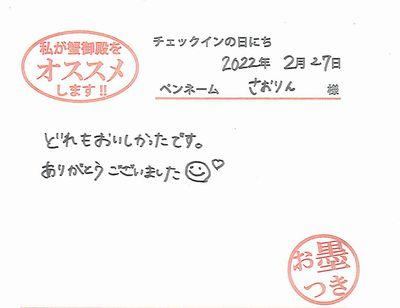 私が蟹御殿を
オススメ
します!!
チェックインの日にち
2022年 2月27日
ペンネーム さおりん 様
どれもおいしかったです。
ありがとうございました
お墨
つき